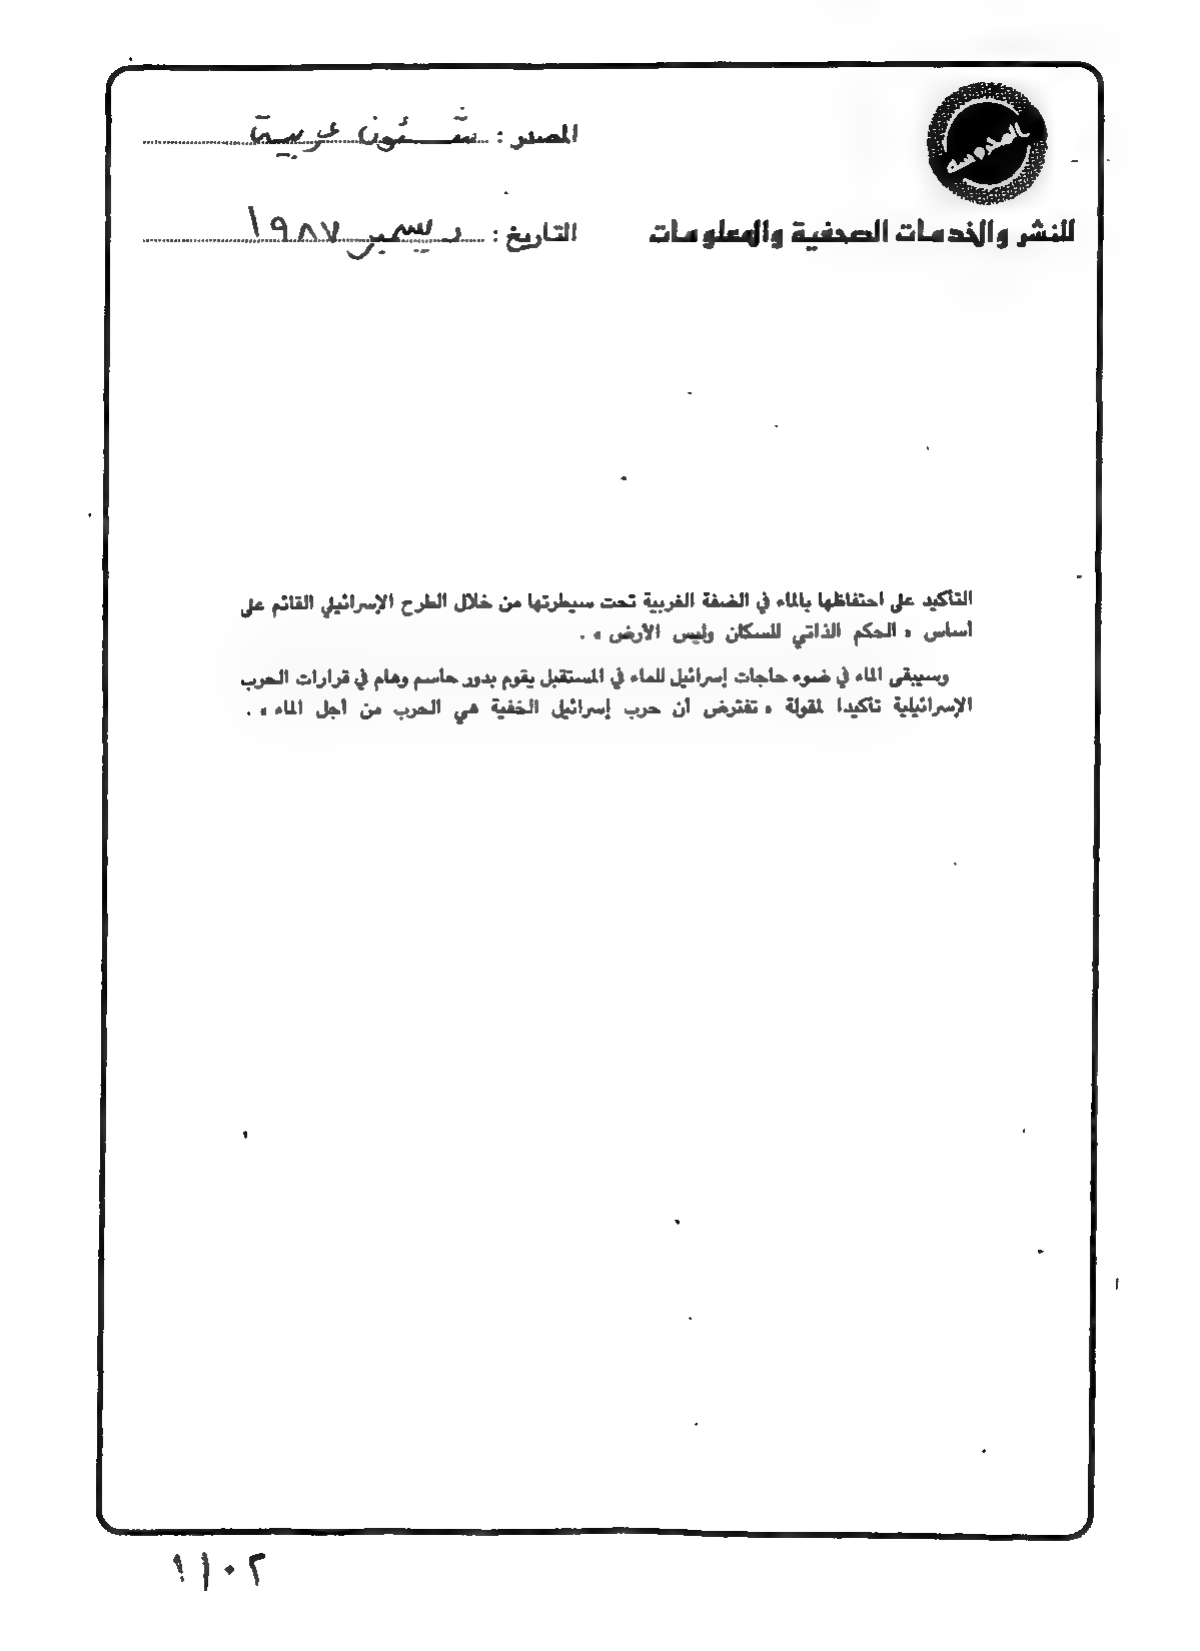 المصدر : شئون عربية
للنشر والخدمات الصحفية والمعلومات
التاريخ : ديسمبر ١٩٨٧
التأكيد على احتفاظها بالماء في الضفة الغربية تحت سيطرتها من خلال الطرح الإسرائيلي القائم على
أساس « الحكم الذاتي للسكان وليس الأرض » .
وسيبقى الماء في ضوء حاجات إسرائيل للماء في المستقبل يقوم بدور حاسم وهام في قرارات الحرب
الإسرائيلية تأكيدا لمقولة « تفترض أن حرب إسرائيل الخفية هي الحرب من أجل الماء » .